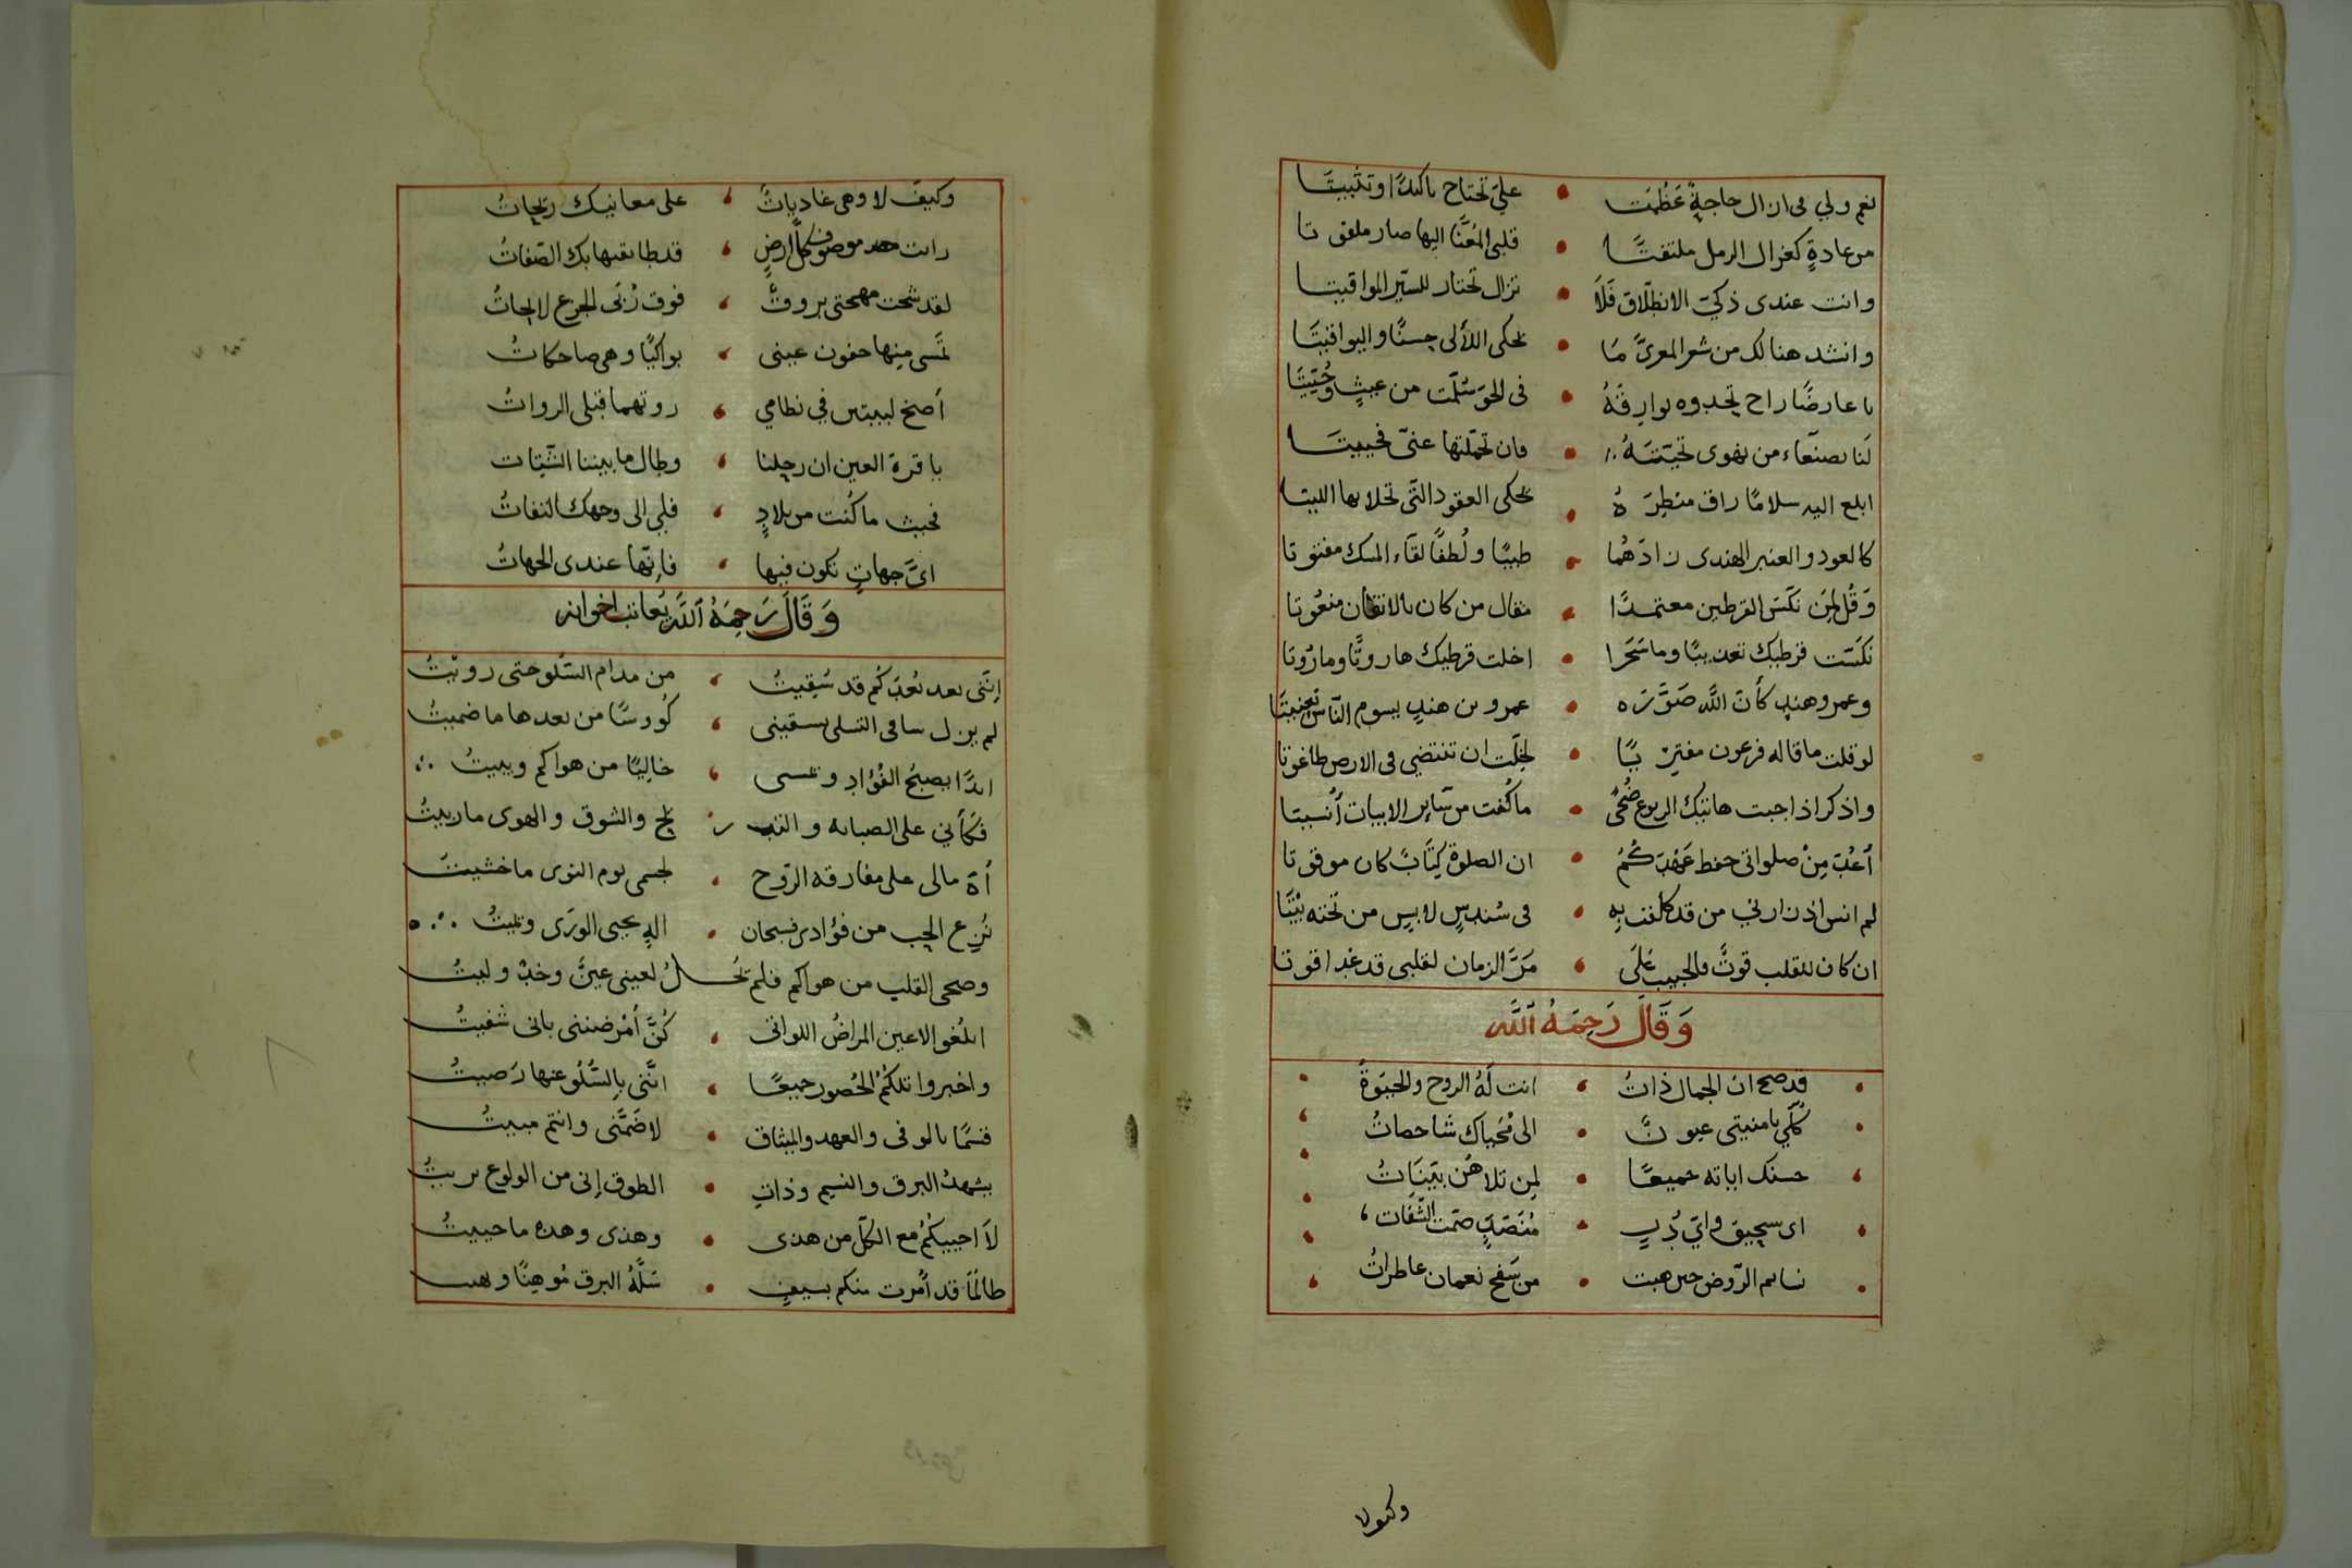 نعم ولي فى ازال حاجةٌ عَظُمَت • علىّ تحتاج تاكيدًا وتثبيتَا
من عادةٍ كغزال الرمل ملتفتًا • قلبى المُعَنَّا اليها صار ملفوتا
وانت عندى ذكيّ الانطلاق فَلَا • تزال تختار للسيّر المواقيتا
وانشد هنالك من شعر المعرىّ مَا • يحكى اللألى حسنًا واليواقيتَا
يا عارضًا راح تحدوه بوارِقُهُ • فى الجوّ سُلّمت من عيثٍ وحُيّيتَا
لَنا بصنعآء من نهوى تحيّتَهُ • فان تحمّلتها عنىّ فحييتَا
ابلغ اليه سلامًا راق منظرُهُ • يحكى العقود التّى تحلا بها الليتا
كالعود والعنبر الهندى زادَهُما • طيبًا ولُطفًا لقآء المسك مفتوتا
وَقُل لِمَن نكَسَ القرطين معتمدًا • مقال من كان بالاتقان منعُوتا
نكَسَت قرطيك تعديبًا وما سَحَرا • اخلت قرطيك هاروتًا وماروتا
وعمرو هندٍ كأنَ اللَّه صَوَّرَه • عمرو بن هندٍ يسوم النّاس تعنيتَا
لو قلت ما قاله فرعون مفتريًا • لخِلت ان تنتضي فى الارض طاغوتا
واذكر اذا جبت هاتيك الربوع ضُحىً • ما كُنت من سآير الابيات أنسيتا
أعُدّ مِنْ صلواتى حفظ عَهْدَكُمُ • ان الصلوة كِتَابً كان موقوتا
لم انس اذ زارنى من قد كلفت بِهِ • فى سُندسٍ لابسٍ من تحته بيْتَا
ان كان للقلب قوتً فالحبيب عَلَى • مَرّ الزمان لقلبى قد غدا قوتا
وَقَالَ رَحِمَهُ ٱللَّه
قد صح ان الجمال ذاتُ • انت لَهُ الروح والحيَوةُ
كُلّي يا منيتى عيونً • الى مُحَياك شاخصاتُ
حسنك اياته جميعًا • لمن تلاهُن بيّنَاتُ
اى سحيق واىّ دُبٍ • صحّت الثّقات
نسايم الرّوض حين هبت • من سَفح نعمان عاطراتُ
وكيف لا
وكيفَ لا وهى غادياتً • على معانيك ريحاتُ
كلّ ارضٍ • قد طابقتها بك الصّفاتُ
لقد شجت مهجتى بروقٌ • فوق رُبَى الجزع لايحاتُ
تمسى منها جفون عينى • بواكيًا وهى ضاحكاتُ
أصخ لبيتين في نظامي • روتهما قبلى الرواتُ
يا قرة العين ان رحلنا • وطال ما بيننا الشّتات
فحيث ما كُنت من بلادٍ • فلي الى وجهك التفاتُ
اىّ جهاتٍ تكون فيها • فانّها عندى الجهاتُ
وَقَالَ رَحِمَهُ ٱللَّه يعاتب اخوانه
انّنى بعد بُعدكُم قد سُقِيتُ • من مدام السّلو حتى رويْتُ
لم يزل ساقى التسلى يسقينى • كُوُوسًا من بعدها ما ضميتُ
ابدًا يصبحُ الفُؤاد ويمسى • خالِيًا من هواكم ويبيتُ
فكأني على الصبابه والتبريح • والشوق والهوى ما ربيتُ
أهَ مالى على مفارقه الرّوح • لجسمى يوم النوى ما خشيتُ
نُزِع الحب من فؤادى فسبحان • الهٍ يحيى الورَى ويميتُ
وصحى القلب من هواكم فلم تحل • لعينى عينٌ وخدٌ وليتُ
ابلغو الاعين المراضُ اللواتى • كُنَّ أمْرضننى بانى شفيتُ
واخبروا تلكُمُ الخُصور جميعًا • انّنى بالسُّلوّ عنها رَضيتُ
قسمًا بالوفى والعهد والميثاق • لا ضَمَّنى وانتم مبيتُ
يشهدُ البرق والنسيم وذات • الطوق إنى من الولوع بريتُ
لَا احييكُمُ مع الكلّ من هذى • وهذى وهذه ما حييتُ
طالمًا قد اُمُرت منكم بسيفٍ • سَلَّهُ البرق مُوهِنًا وهب